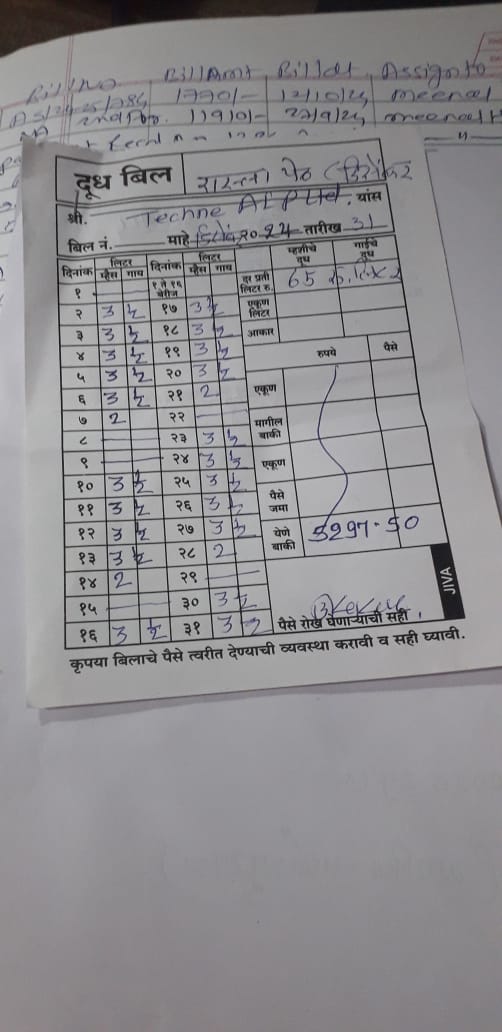 Bill No Bill Amt Bill dt Assign to
1770/- 12/10/24 meenal
1190/- 27/9/24 meenal
दूध बिल
श्री. Techne यांस
बिल नं. माहे डिसेंबर २०24 तारीख 31
दिनांक लिटर दिनांक लिटर म्हशीचे दूध गाईचे दूध
म्हैस गाय म्हैस गाय दर प्रती लिटर रु. 65
१ — १ ते १६ बेरीज
२ 3 ½ १७ 3 ½ एकूण लिटर
३ 3 ½ १८ 3 ½ आकार
४ 3 ½ १९ 3 ½ रुपये पैसे
५ 3 ½ २० 3 ½
६ 3 ½ २१ 2 एकूण
७ 2 २२ — मागील बाकी
८ — २३ 3 ½
९ — २४ 3 ½ एकूण
१० 3 ½ २५ 3 ½
११ 3 ½ २६ 3 ½ पैसे जमा
१२ 3 ½ २७ 3 ½ येणे बाकी 5297-50
१३ 3 ½ २८ 2
१४ 2 २९ —
१५ — ३० 3 ½
१६ 3 ½ ३१ 3 ½ पैसे रोख घेणाऱ्याची सही
कृपया बिलाचे पैसे त्वरीत देण्याची व्यवस्था करावी व सही घ्यावी.
JIVA